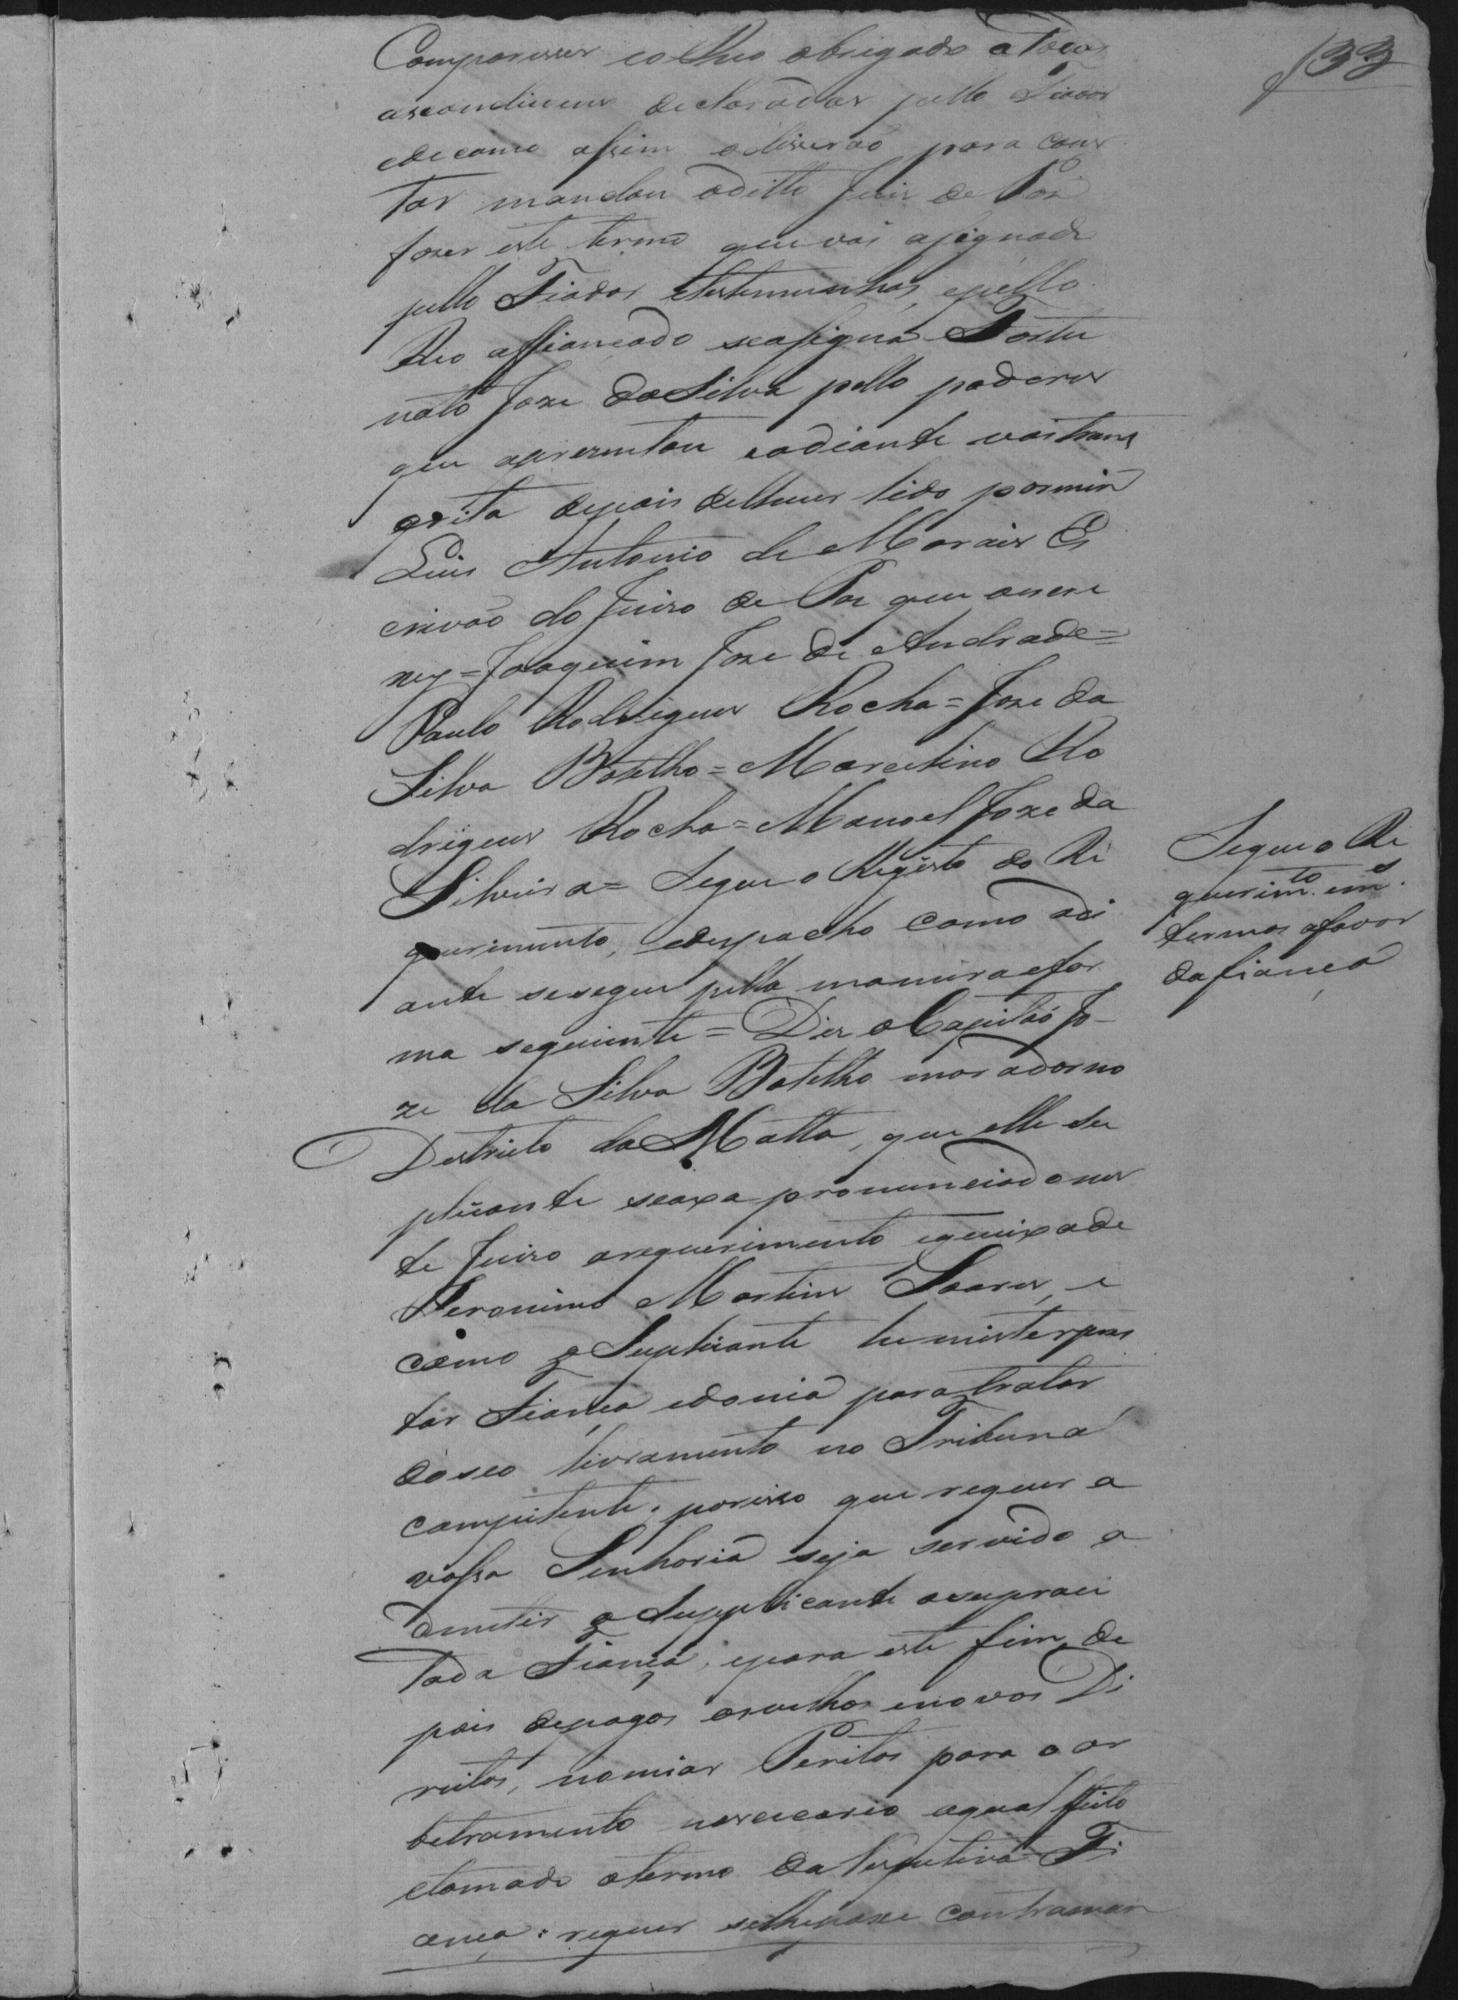 133
Comparisser co elheo obrigado a todas
ascondiçoens declaradas pello Fiador
edecomo assim odiserão para cons
tar mandou oditto Juis de Pas
faser este termo que vai asignado
pello Fiador etestemunhas, epello
Reo affiançado seasigna Fortu
nato Joze daSilva pello poderes
que aprezentou eadiante vai trans
crita depois delhever lido pormin
Luis Antonio de Morais Es
crivão do Juizo de Pas que oescre
vey = Joaquim Joze de Andrade =
Paulo Rodrigues Rocha = Joze da
Silva Botelho = Marcelino Ro
drigues Rocha = Manoel Joze da
Silveira = Segue o Registo do Re
querimento, edespacho como adi
ante sesegue pella maneira efor
ma seguinte = Dis o Capitão Jo-
ze da Silva Botelho morador no
Destricto da Matta, que elle su
plicante seaxa pronunciado nes
te Juizo arequerimento equeixa de
Jeronimo Martins Soares, e
como o Suplicante he mister pres
tar Fiança edonia para tratar
doseo livramento no Tribunal
competente, porisso que requer a
vossa Senhoria seja servido a
dmitir o Supplicante asupraci
tada Fiança, epara este fim de
pois depagos osvelhos enovos Di
reitos, nomiar Peritos para o ar
betramento nescecario oqual feito
etomado otermo da respectiva Fi
ança: requer selhepasse contraman
Segue o Re
querimto. em s.
termos afavor
dafiança